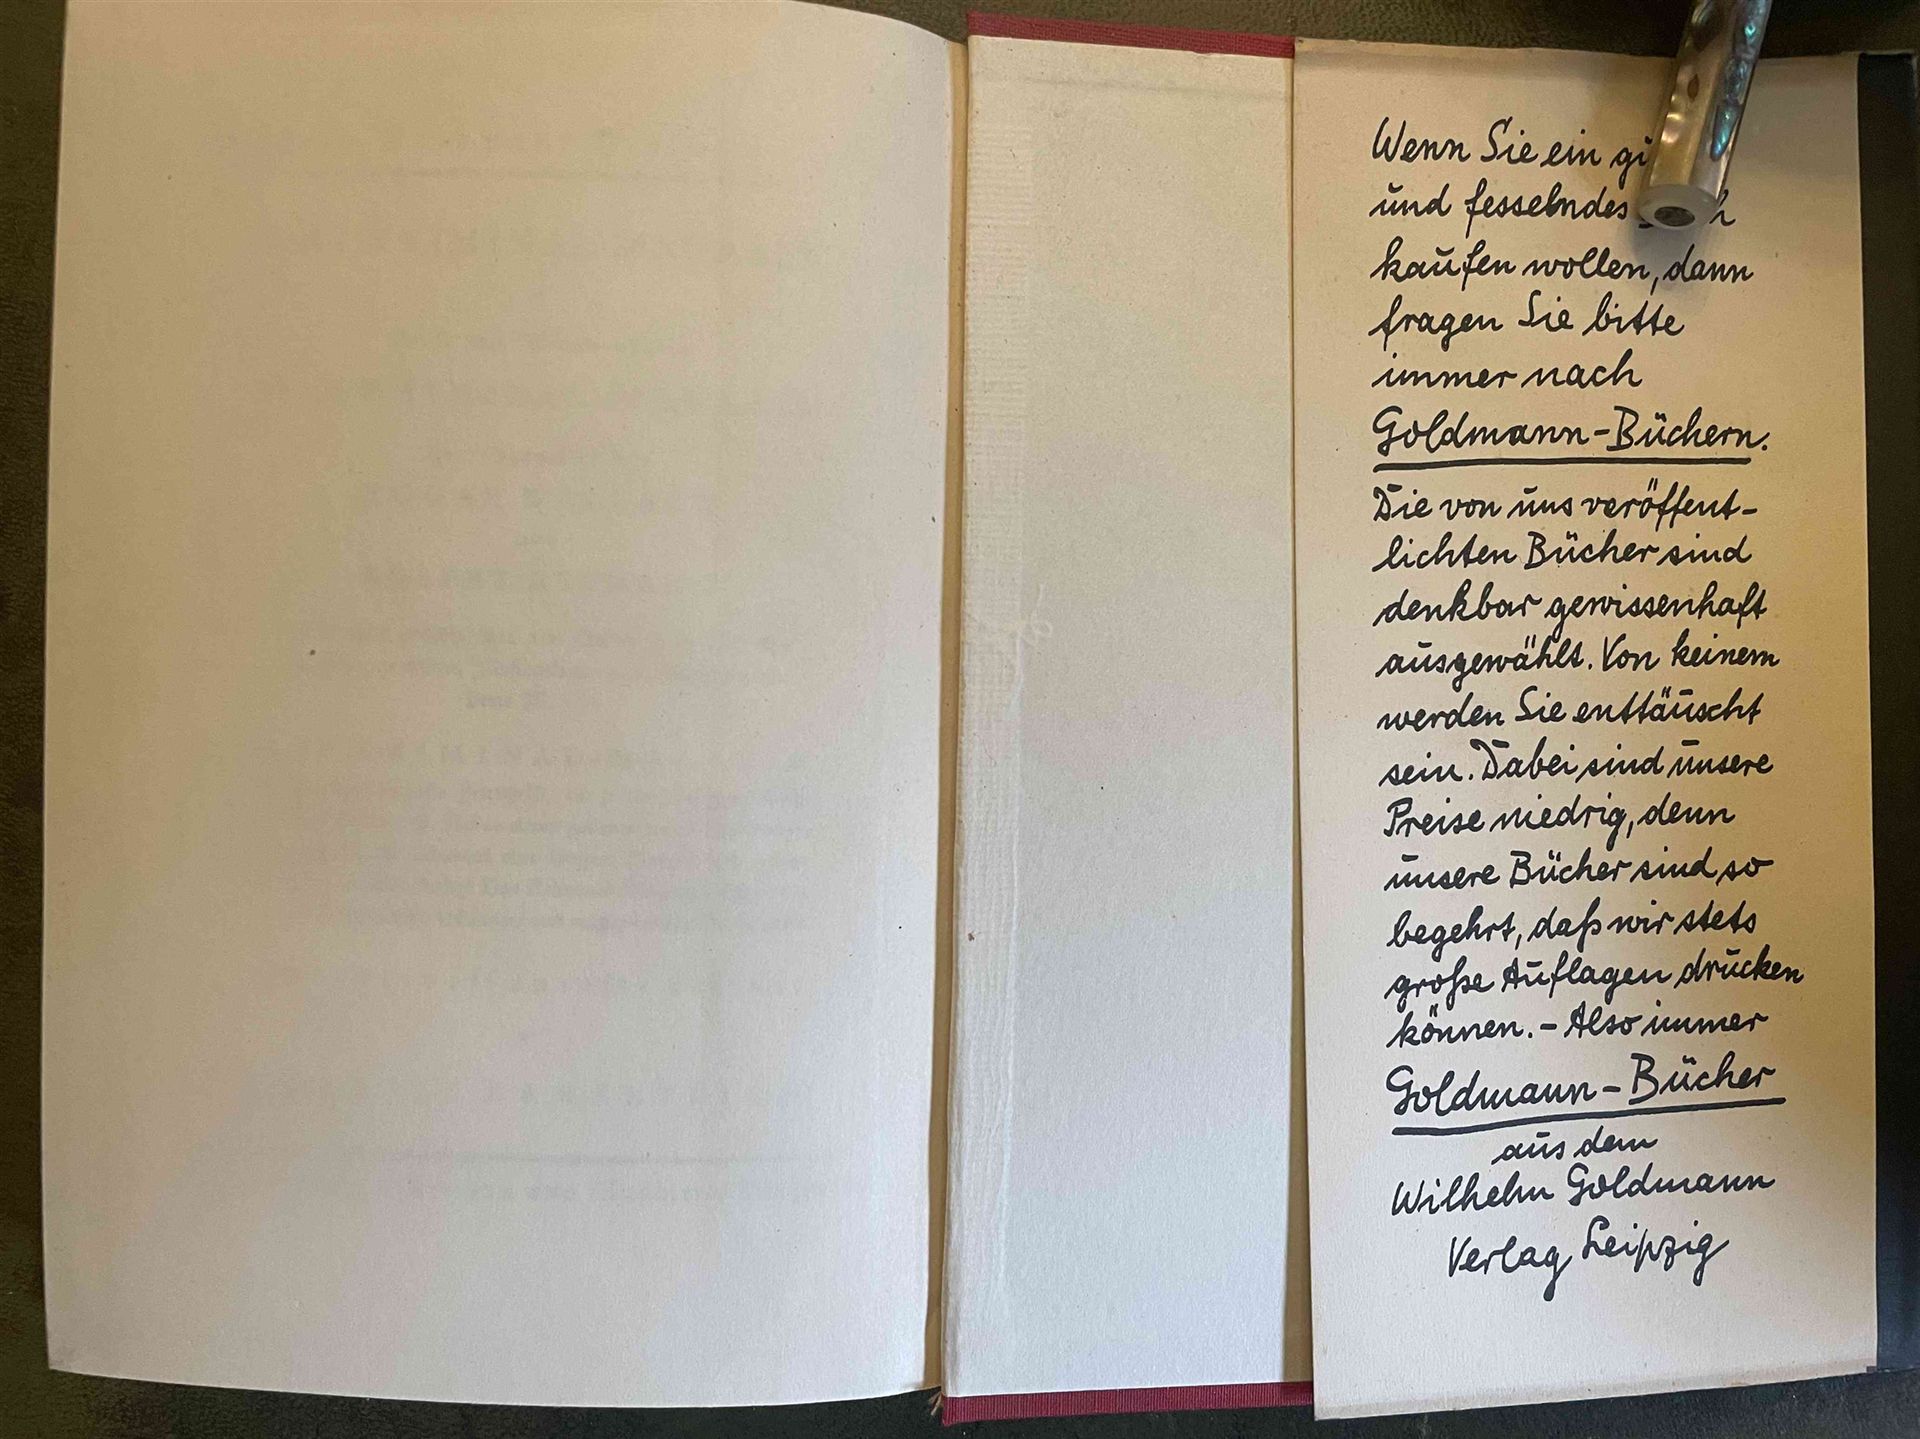 Wenn Sie ein
und fesselndes
kaufen wollen, dann
fragen Sie bitte
immer nach
Goldmann-Büchern.
Die von uns veröffent-
lichten Bücher sind
denkbar gewissenhaft
ausgewählt. Von keinem
werden Sie enttäuscht
sein. Dabei sind unsere
Preise niedrig, denn
unsere Bücher sind so
begehrt, daß wir stets
große Auflagen drucken
können. - Also immer
Goldmann-Bücher
aus dem
Wilhelm Goldmann
Verlag Leipzig